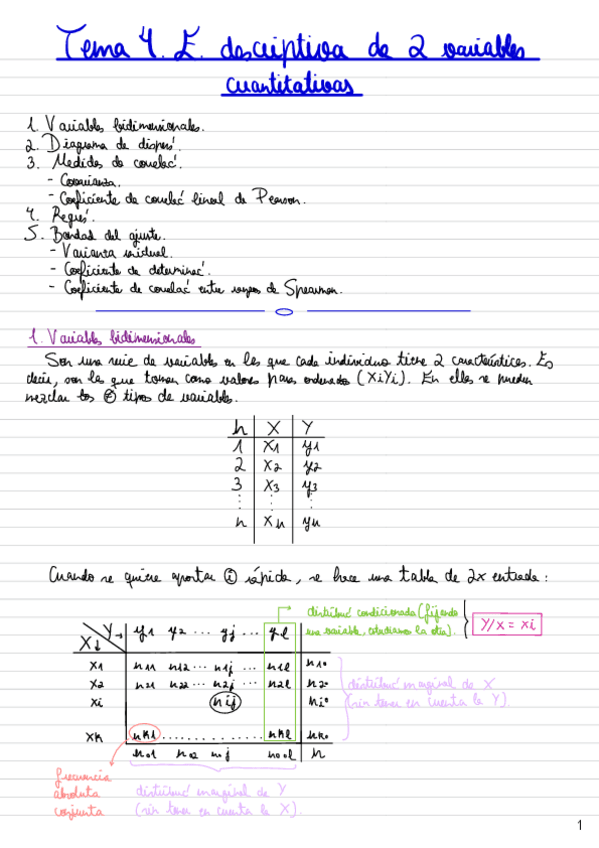 Tema 4. E. descriptiva de 2 variables
cuantitativas
1. Variables bidimensionales.
2. Diagrama de dispers´.
3. Medidas de correlac´.
- Covarianza.
- Coeficiente de correlac´ lineal de Pearson.
4. Regres´.
5. Bondad del ajuste.
- Varianza residual.
- Coeficiente de determinac´.
- Coeficiente de correlac´ entre rangos de Spearman.
1. Variables bidimensionales
Son una serie de variables en las que cada individuo tiene 2 características. Es
decir, son las que toman como valores pares ordenados (XiYi). En ellas se pueden
mezclar los ≠ tipos de variables.
n X Y
1 X1 y1
2 X2 y2
3 X3 y3
⋮ ⋮ ⋮
n Xn yn
Cuando se quiere aportar ⓘ rápida, se hace una tabla de 2x entrada:
distribuc´ condicionada (fijando
una variable, estudiamos la otra).
Y/x = xi
X↓ Y→ y1 y2 ... yj ... yl
x1 n11 n12 ... n1j ... n1l n1•
x2 n21 n22 ... n2j ... n2l n2•
xi nij ni•
xk nk1 ... nkl nk•
n•1 n•2 n•j n•l n
distribuc´ marginal de X
(sin tener en cuenta la Y).
frecuencia
absoluta
conjunta
distribuc´ marginal de Y
(sin tener en cuenta la X).
1